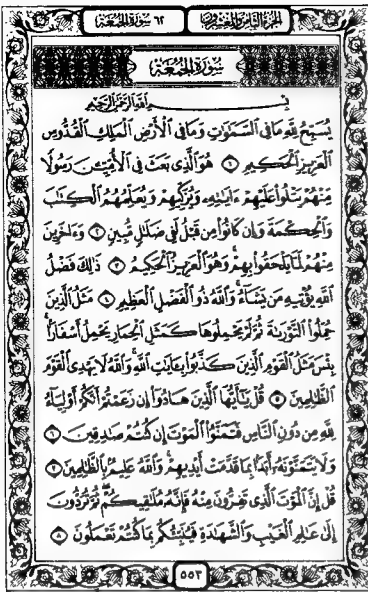 الجزء الثامن والعشرون ٦٢ سورة الجمعة
سُورَةُ الجُمُعَةِ
بِسْمِ اللَّهِ الرَّحْمَٰنِ الرَّحِيمِ
يُسَبِّحُ لِلَّهِ مَا فِي السَّمَٰوَٰتِ وَمَا فِي الْأَرْضِ الْمَلِكِ الْقُدُّوسِ
الْعَزِيزِ الْحَكِيمِ ١ هُوَ الَّذِي بَعَثَ فِي الْأُمِّيِّينَ رَسُولًا
مِّنْهُمْ يَتْلُوا عَلَيْهِمْ ءَايَٰتِهِ وَيُزَكِّيهِمْ وَيُعَلِّمُهُمُ الْكِتَٰبَ
وَالْحِكْمَةَ وَإِن كَانُوا مِن قَبْلُ لَفِي ضَلَٰلٍ مُّبِينٍ ٢ وَءَاخَرِينَ
مِنْهُمْ لَمَّا يَلْحَقُوا بِهِمْ وَهُوَ الْعَزِيزُ الْحَكِيمُ ٣ ذَٰلِكَ فَضْلُ
اللَّهِ يُؤْتِيهِ مَن يَشَاءُ وَاللَّهُ ذُو الْفَضْلِ الْعَظِيمِ ٤ مَثَلُ الَّذِينَ
حُمِّلُوا التَّوْرَىٰةَ ثُمَّ لَمْ يَحْمِلُوهَا كَمَثَلِ الْحِمَارِ يَحْمِلُ أَسْفَارًا
بِئْسَ مَثَلُ الْقَوْمِ الَّذِينَ كَذَّبُوا بِـَٔايَٰتِ اللَّهِ وَاللَّهُ لَا يَهْدِي الْقَوْمَ
الظَّٰلِمِينَ ٥ قُلْ يَٰأَيُّهَا الَّذِينَ هَادُوا إِن زَعَمْتُمْ أَنَّكُمْ أَوْلِيَاءُ
لِلَّهِ مِن دُونِ النَّاسِ فَتَمَنَّوُا الْمَوْتَ إِن كُنتُمْ صَٰدِقِينَ ٦
وَلَا يَتَمَنَّوْنَهُ أَبَدًا بِمَا قَدَّمَتْ أَيْدِيهِمْ وَاللَّهُ عَلِيمٌ بِالظَّٰلِمِينَ ٧
قُلْ إِنَّ الْمَوْتَ الَّذِي تَفِرُّونَ مِنْهُ فَإِنَّهُ مُلَٰقِيكُمْ ثُمَّ تُرَدُّونَ
إِلَىٰ عَٰلِمِ الْغَيْبِ وَالشَّهَٰدَةِ فَيُنَبِّئُكُم بِمَا كُنتُمْ تَعْمَلُونَ ٨
٥٥٣